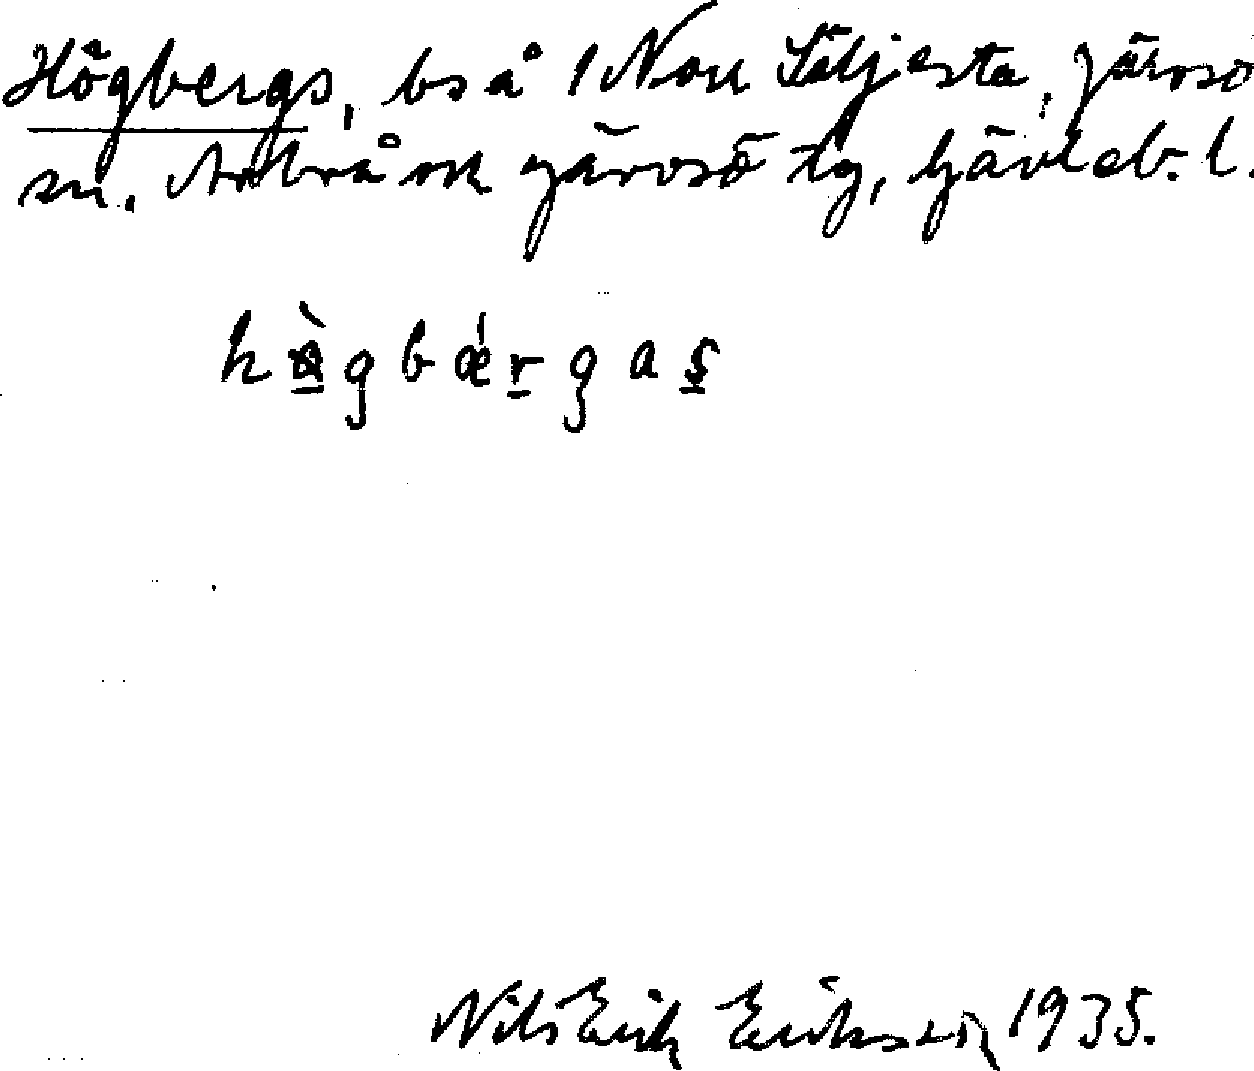 Högbergs, bs å 1 Norr Säljesta, Järvsö
sn. Arbrå och Järvsö tg, Gävleb. l.
hög bǽr gas
Nils Erik Eriksson 1935.